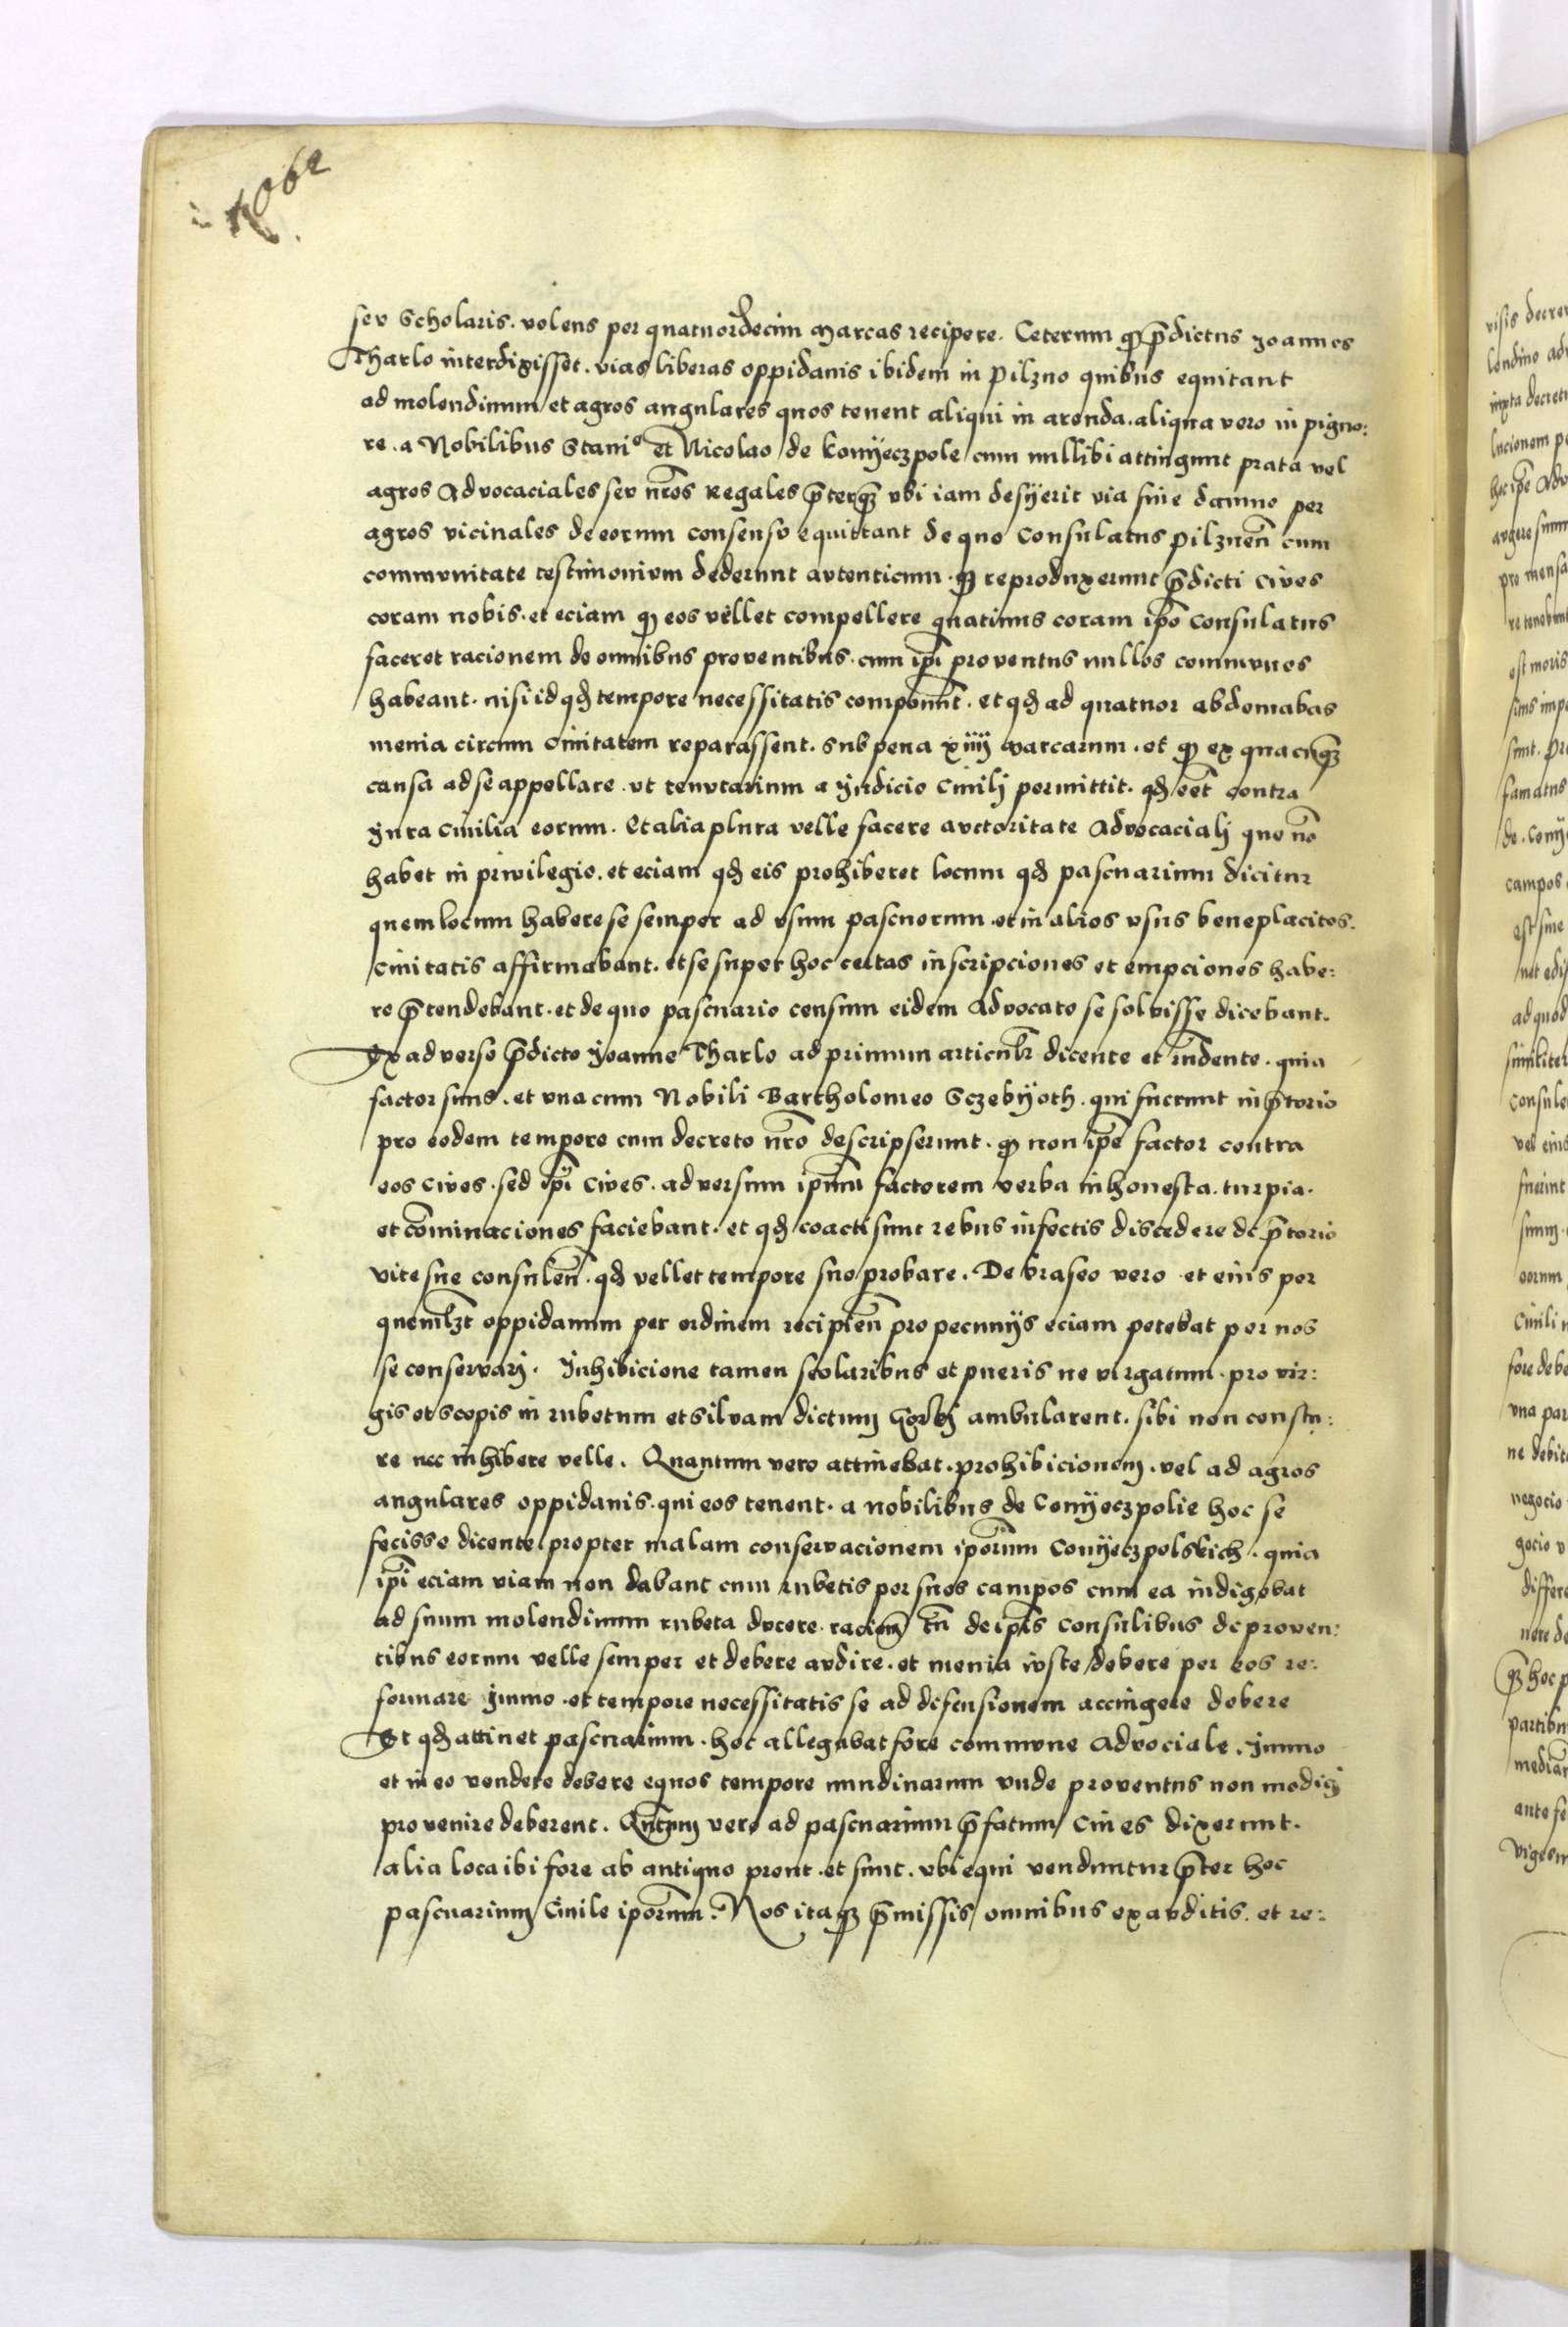 seu Scholaris. volens per quatuordecim marcas recipere. Ceterum qͦ p̄dictus Joannes
Tharlo interdixisset. vias liberas oppidanis ibidem in Pilzno quibus equitant
ad molendinum et agros angulares quos tenent aliqui in arenda. aliqua vero in pigno:
re. a Nobilibus Staniᵒ et Nicolao de Konyeczpole cum nullibi attingunt prata vel
agros Advocaciales seu nr̄os Regales p̄terqꝫ vbi iam desyerit via sine damno per
agros vicinales de eorum consensu equittant de quo Consulatus Pilznen̄ cum
communitate testimonium dederunt autenticum. qͦ reproduxerunt p̄dicti cives
coram nobis. et eciam qͦ eos vellet compellere quatinus coram ip̄o Consulatus
faceret racionem de omnibus proventibus. cum ip̄i proventus nullos communes
habeant. nisi id qd̄ tempore necessitatis componūt. et qd̄ ad quatuor abdomabas
menia circum Civitatem reparassent. sub pena xiiij marcarum. et qͦ ex quacūqꝫ
causa ad se appellare. vt tenutarium a judicio Civilj permittit. qd̄ eēt contra
jura Civilia eorum. Et alia plura velle facere auctoritate Advocacialj quo nō
habet in priuilegio. et eciam qd̄ eis prohiberet locum qd̄ pascuarium dicitur
quem locum habere se semper ad vsum pascuorum et in alios vsus beneplacitos.
Civitatis affirmabant. et se super hoc certas inscripciones et empciones habe:
re p̄tendebant. et de quo pascuario censum eidem Advocato se solvisse dicebant.
Ex adverso p̄dicto Joanne Tharlo ad primum articulū dicente et rn̄dente. quia
factor suus. et vna cum Nobili Bartholomeo Sczebyoth. qui fuerunt in p̄torio
pro eodem tempore cum decreto nr̄o descripserunt. qͦ non ip̄e factor contra
eos cives. sed ip̄i Cives. adversum ip̄um factorem verba inhonesta. turpia.
et cōminaciones faciebant. et qd̄ coacti sunt rebus infectis discedere de p̄torio
vite sue consulen̄. qd̄ vellet tempore suo probare. De braseo vero et eius per
quemlꝫt oppidanum per ordinem recipien̄ pro pecunijs eciam petebat per nos
se conservarj. Inhibicione tamen scolaribus et pueris ne virgatum. pro vir:
gis et scopis in rubetum et silvam dictum ambularent. sibi non consta:
re nec inhibere velle. Quantum vero attinebat. prohibicionem. vel ad agros
angulares oppidanis. qui eos tenent. a nobilibus de Conyeczpolie hoc se
fecisse dicente propter malam conservacionem ip̄orum Conyeczpolskich. quia
ip̄i eciam viam non dabant cum rubetis per suos campos cum ea indigebat
ad suum molendinum rubeta ducere. racioēm tn̄ de ip̄is consulibus de proven:
tibus eorum velle semper et debere audire. et menia iuste debere per eos re:
formare jmmo et tempore necessitatis se ad defensionem accingere debere
Et qd̄ attinet pascuarium. hoc allegabat fore commune Advociale. jmmo
et in eo vendere debere equos tempore nundinarum vnde proventus non modicj
provenire deberent. Qn̄tum vero ad pascuarium p̄fatum Cives dixerunt.
alia loca ibi fore ab antiquo prout et sunt. vbi equi venduntur p̄ter hoc
pascuarium Civile ip̄orum. Nos itaqꝫ p̄missis omnibus exauditis. et re: